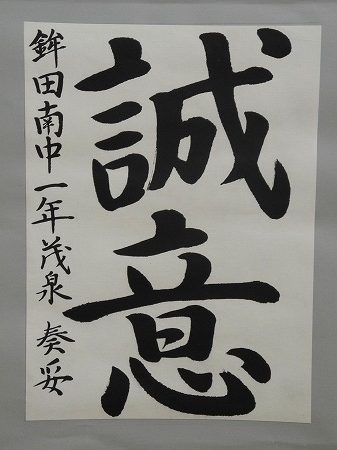 誠意
鉾田南中一年茂泉奏妥